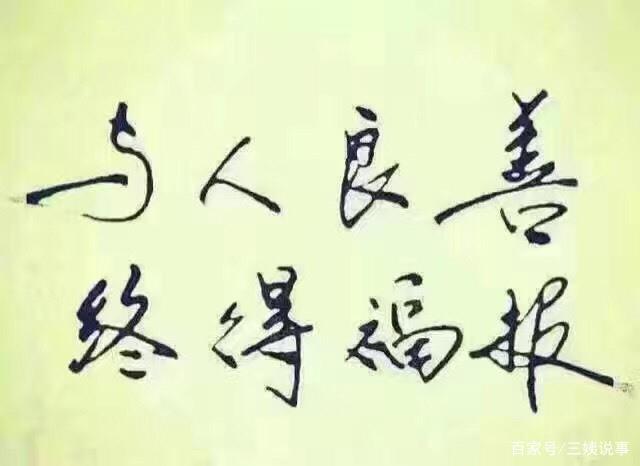 与人良善
终得福报
百家号/三姨说事